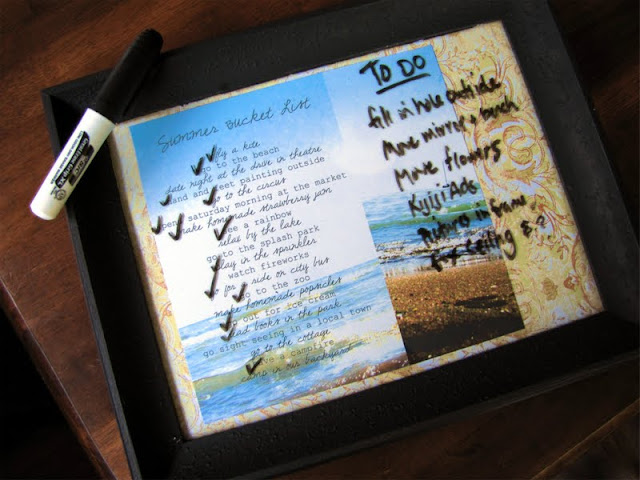 Summer Bucket List
fly a kite
go to the beach
date night at the drive in theatre
hand and feet painting outside
go to the circus
saturday morning at the market
make homemade strawberry jam
see a rainbow
relax by the lake
go to the splash park
play in the sprinkler
watch fireworks
for a ride on city bus
go to the zoo
make homemade popsicles
out for ice cream
read books in the park
go sight seeing in a local town
go to the cottage
have a campfire
camp in our backyard
TO DO
fill in hole outside
Move mirror + bench
Move flowers
Kijiji Ads
Pictures in frame
for ceiling